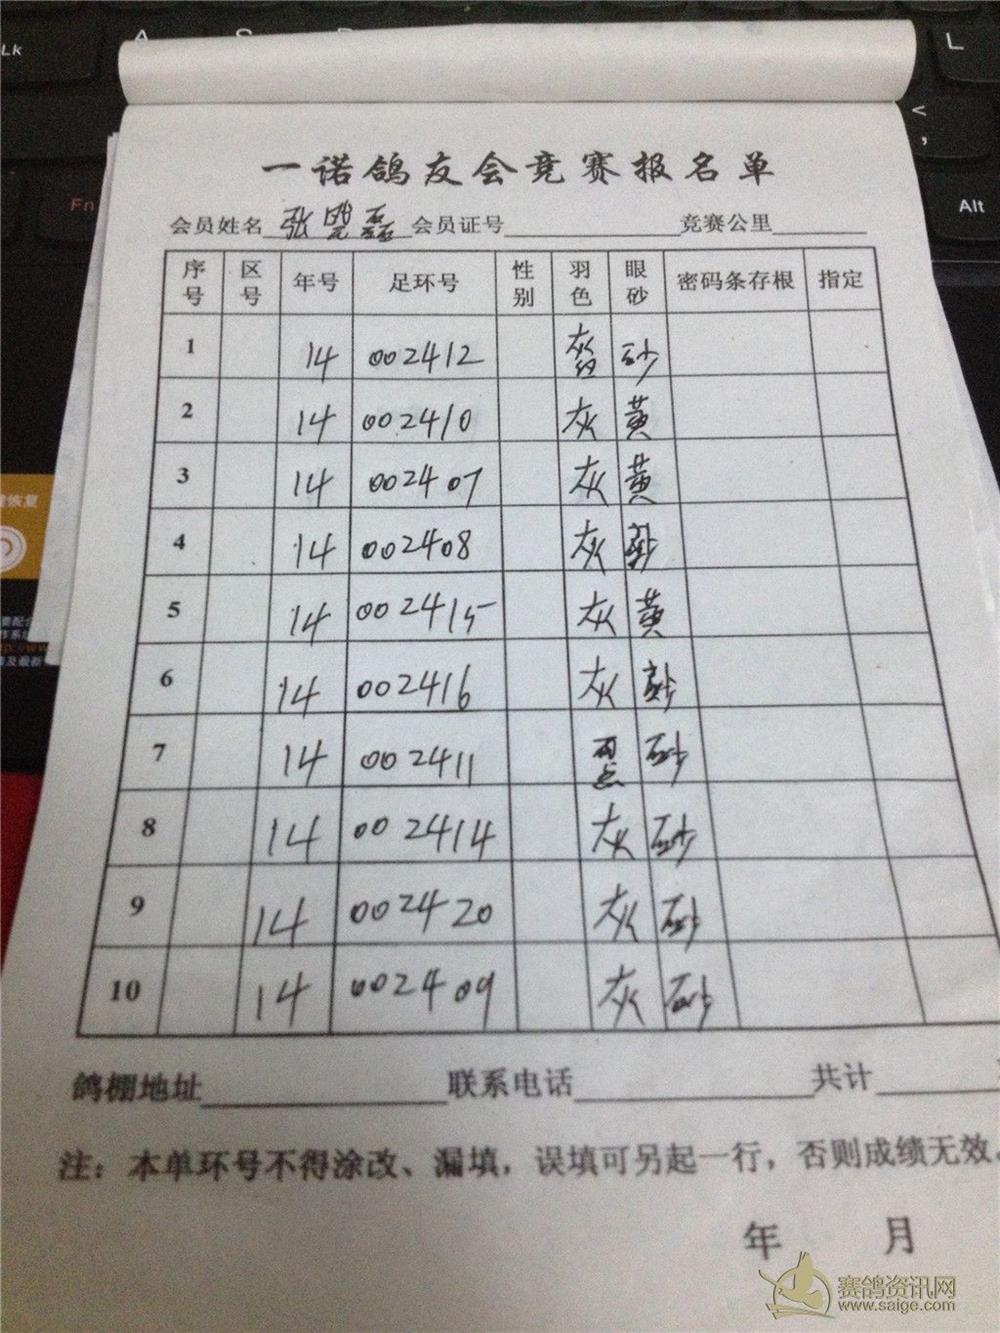 Lk
A
S
L
<
,
Fn
Alt
一诺鸽友会竞赛报名单
会员姓名 张 磊 会员证号 竞赛公里
序号 区号 年号 足环号 性别 羽色 眼砂 密码条存根 指定
1 14 002412 灰 砂
2 14 002410 灰 黄
3 14 002407 灰 黄
4 14 002408 灰
5 14 002415 灰 黄
6 14 002416 灰
7 14 002411 雨点 砂
8 14 002414 灰 砂
9 14 002420 灰 砂
10 14 002409 灰 砂
鸽棚地址 联系电话 共计
注：本单环号不得涂改、漏填，误填可另起一行，否则成绩无效。
年 月
恢复
要配合
作系统
http://www
及最新
赛鸽资讯网
www.saige.com